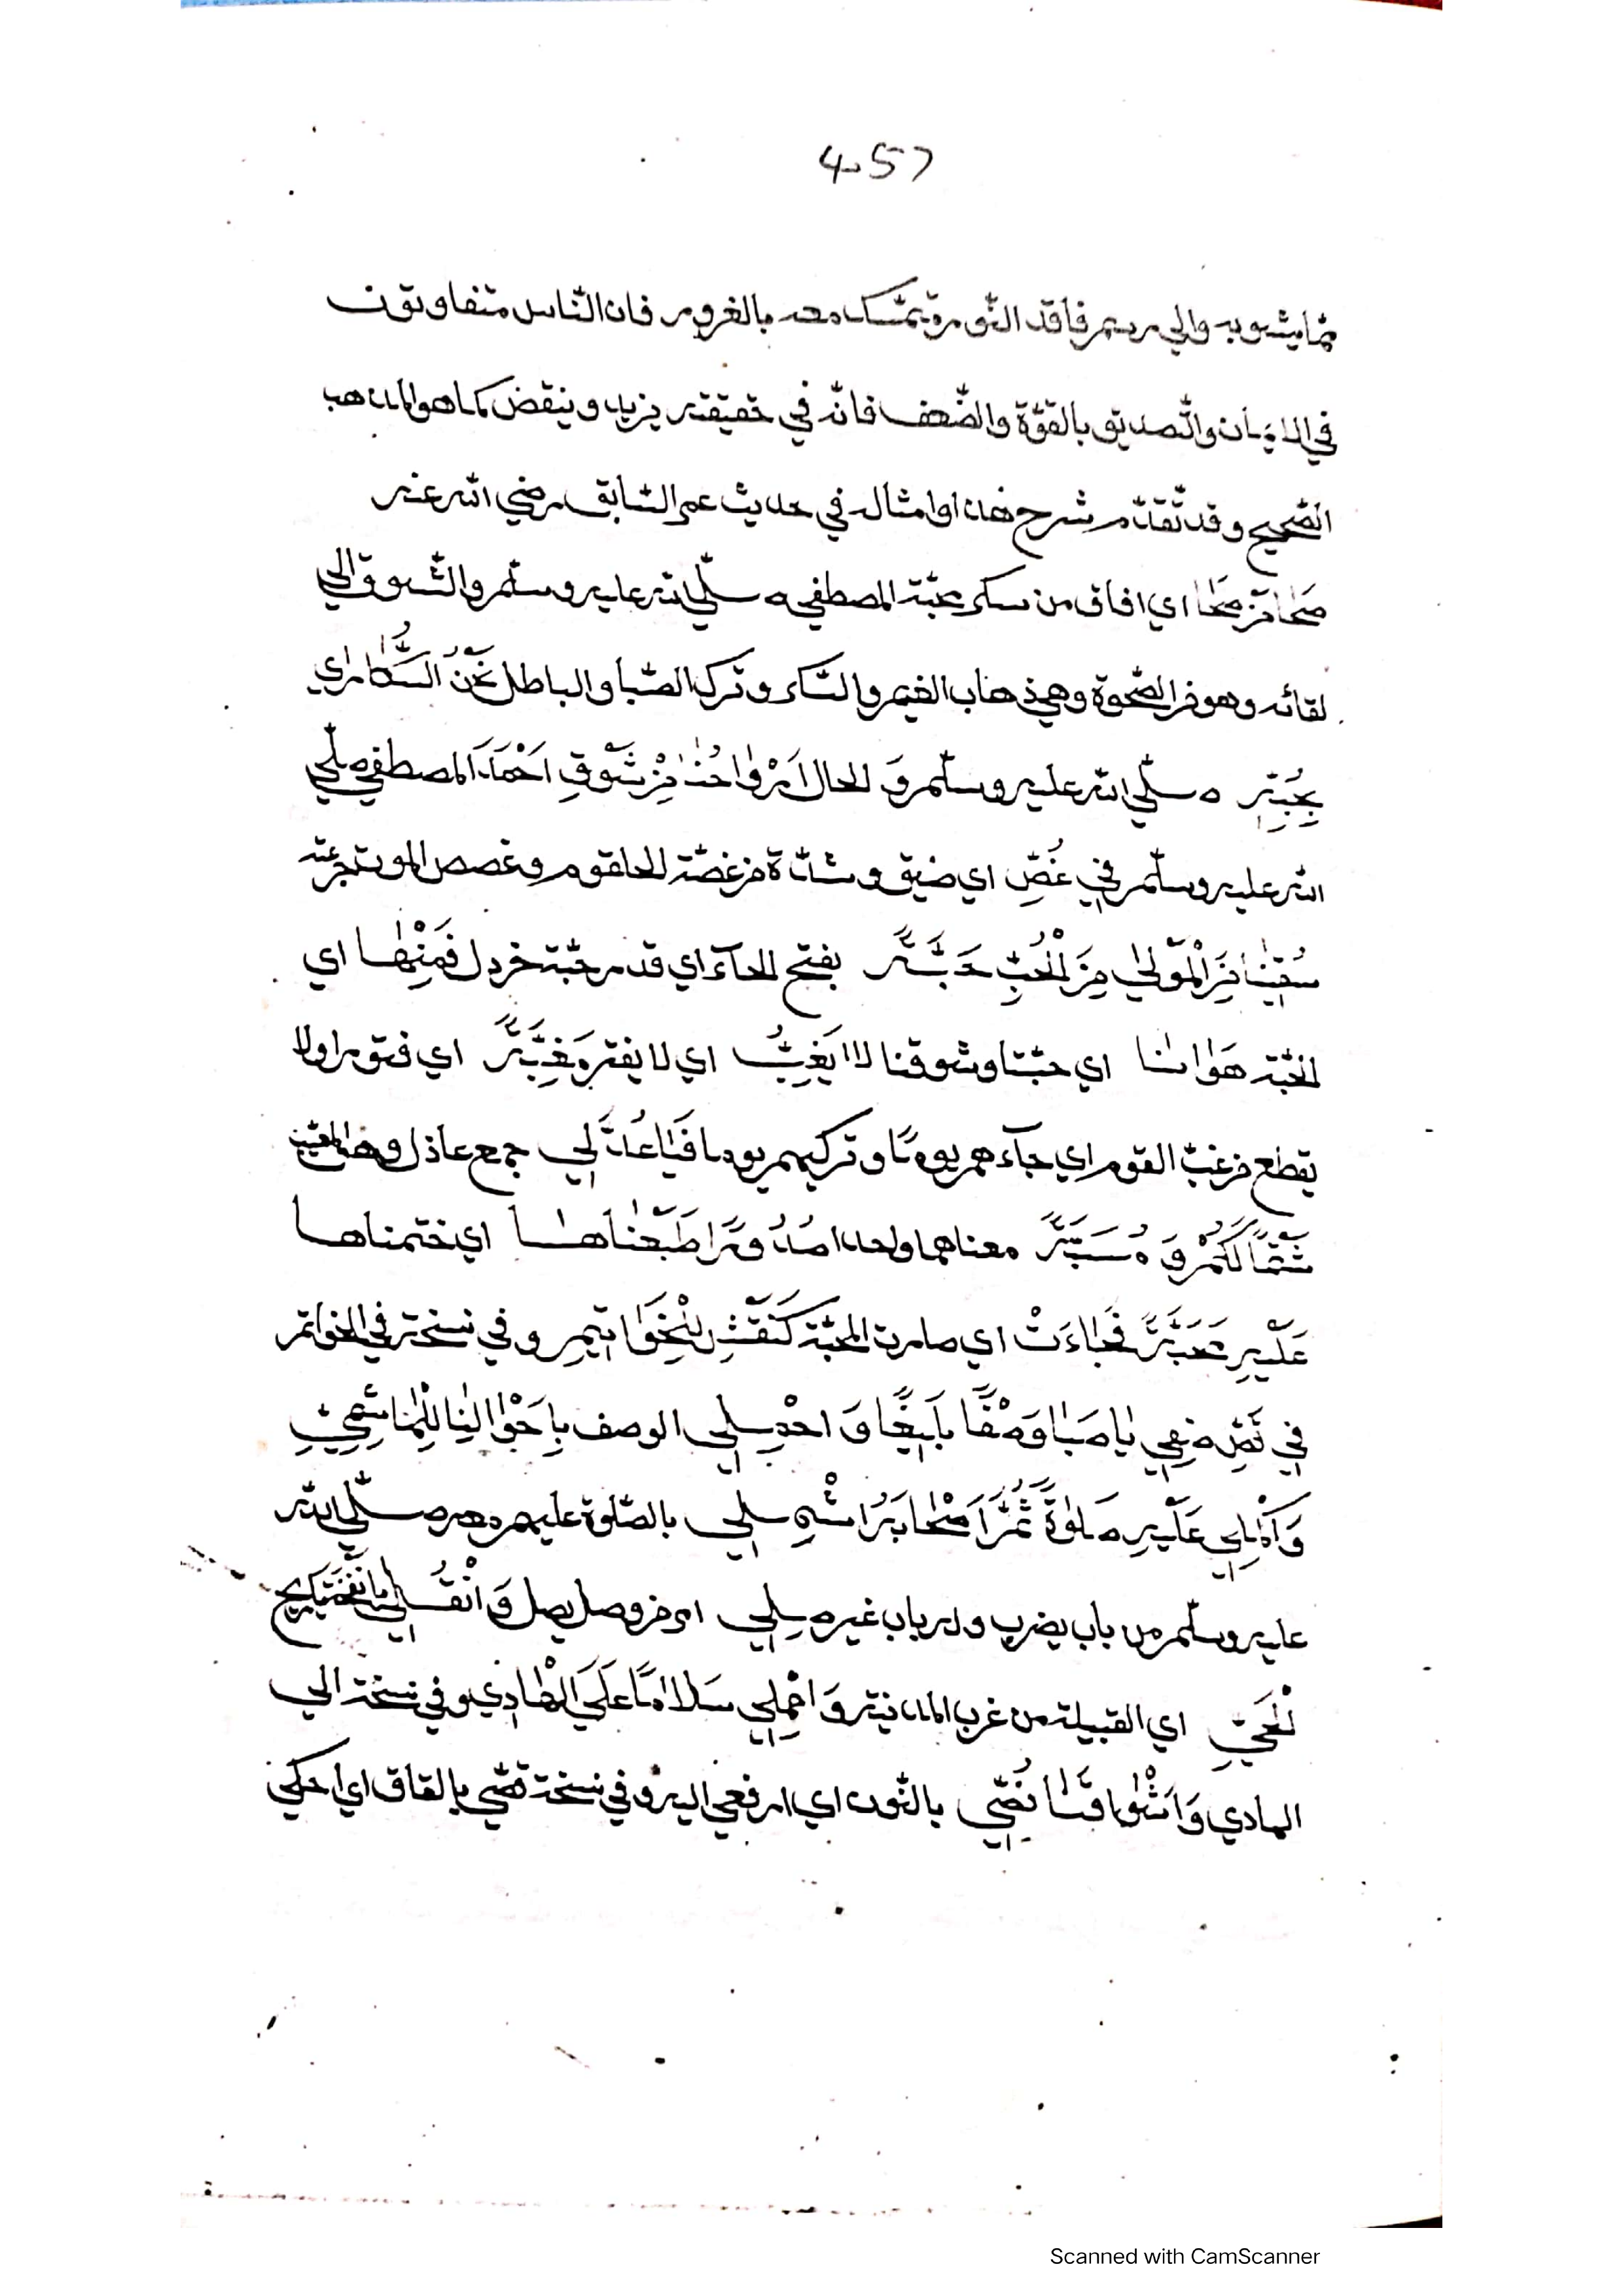 4057
مما يشوبه والي مريم فاقد النور ة بتمسك معه بالغرور فان الناس متفاوتون
في الايمان والتصديق بالقوّة والضّعف فانّه في حقيقته يزيد وينقض كما هو المذهب
الصّحيح وقد تّقدّم شرح هذا وامثاله في حديث عمر السّابق رضي الله عنه
صَحٰا مَنْ صَحٰا اي افاق من سكر محبّة المصطفي صلّي الله عليه وسلّم والشّوق الي
لقائه وهو من الصّحوة وهي ذهاب الغيم والسّكر وترك الصّبا والباطل نَحْنُ السُّكٰارٰي
بِحُبِّهِ صلّي الله عليه وسلّم وَ الحال اَرْوٰاحُنٰا مِنْ شَوْقِ اَحْمَدَ المصطفي صلّي
الله عليه وسلّم في غُصِّ اي ضيق وشدّة من غصّة الحلقوم وغصص الموت جرعته
سُقِيْنٰا مِنَ الْمَوْلٰي مِنَ الْحُبِّ حَبَّةً بفتح الحآء اي قدر حبّة خردل فَمِنْهٰا اي
المحبّة هَوٰانٰا اي حبّنا وشوقنا لاا يَغِبُّ اي لا يفتر مَغِبَّةً اي فتورا ولا
يقطع من غبّ القوم اي جآءهم يومًا وتركهم يوما فَيٰا عُذَّلِي جمع عاذل وهو المعيّب
شَتْمًا لَكُمْ وَ مُسَبَّةً معناهما واحد اصُدُورًا طَبَعْنٰاهٰا اي ختمناها
عَلَيْهِ مَحَبَّةً فَجٰاءَتْ اي صارت المحبّة كَنَقْشِ الْخَوٰاتِيْمِ وفي نسخة في الخواتم
في نَصِّ صِفِي يٰا صَبٰا وَصْفًا بَلِيْغًا وَ احْوِسِلِي الوصف بِاَحْوٰالِنٰا لِلْهٰاشِمِيِّ
وَاَكْمِلِي عَلَيْهِ صَلٰوةً ثُمَّ اَصْحٰابَهُ اشْمِلِي بالصّلوة عليهم معه صلّي الله
عليه وسلّم من باب يضرب وله باب غيره سِلِي امر من وصل يصل وَ انْقُلِي
الْحَيِّ اي القبيلة من غرب المدينة وَ احْمِلِي سَلٰامًا عَلَي الْهٰادِي وفي نسخة الي
الهادي وَ اَشْوٰاقَنٰا نُصِّي بالنّون اي ارفعي اليه وفي نسخة قصّي بالقاف اي احكي
Scanned with CamScanner